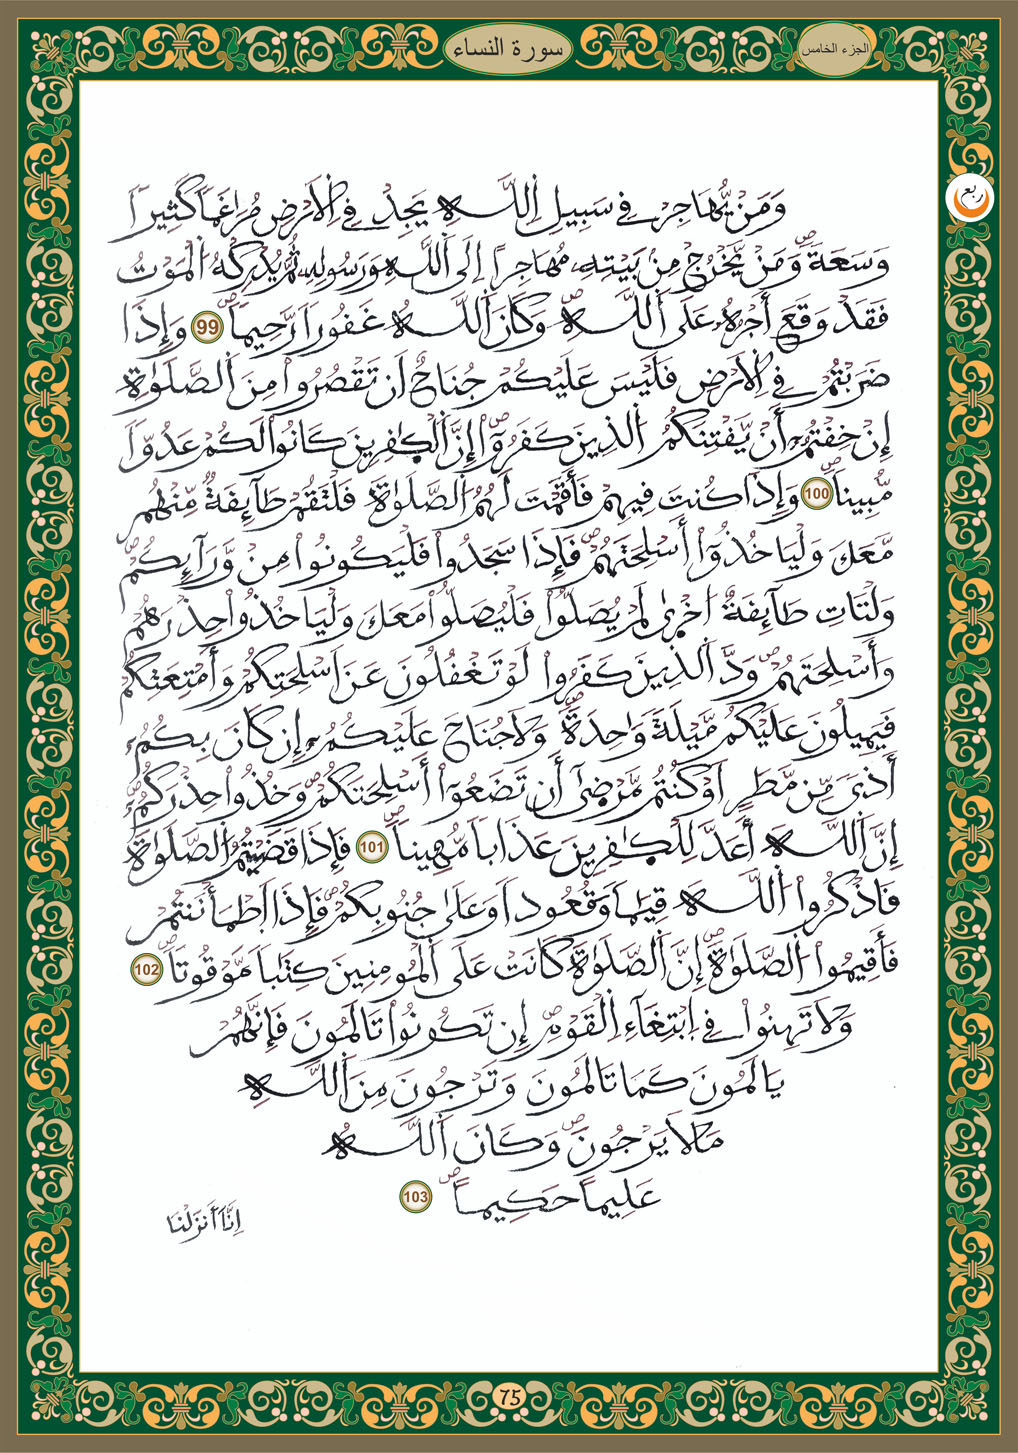 الجزء الخامس
سورة النساء
ربع
وَمَنْ يُّهَاجِرْ فِے سَبِيلِ اِ۬للَّهِ يَجِدْ فِے اِ۬لَارْضِ مُرَٰغَماٗ كَثِيراٗ
وَسَعَةٗۖ وَمَنْ يَّخْرُجْ مِنۢ بَيْتِهِۦ مُهَاجِراً اِلَي اَ۬للَّهِ وَرَسُولِهِۦ ثُمَّ يُدْرِكْهُ اُ۬لْمَوْتُ
فَقَدْ وَقَعَ أَجْرُهُۥ عَلَي اَ۬للَّهِۖ وَكَانَ اَ۬للَّهُ غَفُوراٗ رَّحِيماٗۖ 99 وَإِذَا
ضَرَبْتُمْ فِے اِ۬لَارْضِ فَلَيْسَ عَلَيْكُمْ جُنَاحٌ اَن تَقْصُرُواْ مِنَ اَ۬لصَّلَوٰةِ
إِنْ خِفْتُمُۥٓ أَنْ يَّفْتِنَكُمُ اُ۬لذِينَ كَفَرُوٓاْۖ إِنَّ اَ۬لْكٰ۪فِرِينَ كَانُواْ لَكُمْ عَدُوّاٗ
مُّبِيناٗۖ 100 وَإِذَا كُنتَ فِيهِمْ فَأَقَمْتَ لَهُمُ اُ۬لصَّلَوٰةَ فَلْتَقُمْ طَآئِفَةٞ مِّنْهُم
مَّعَكَ وَلْيَاخُذُوٓاْ أَسْلِحَتَهُمْۖ فَإِذَا سَجَدُواْ فَلْيَكُونُواْ مِنْ وَّرَآئِكُمْۖ
وَلْتَاتِ طَآئِفَةٌ اُخْر۪يٰ لَمْ يُصَلُّواْ فَلْيُصَلُّواْ مَعَكَ وَلْيَاخُذُواْ حِذْرَهُمْ
وَأَسْلِحَتَهُمْۖ وَدَّ اَ۬لذِينَ كَفَرُواْ لَوْ تَغْفُلُونَ عَنَ اَسْلِحَتِكُمْ وَأَمْتِعَتِكُمْ
فَيَمِيلُونَ عَلَيْكُم مَّيْلَةٗ وَٰحِدَةٗۖ وَلَا جُنَاحَ عَلَيْكُمُۥٓ إِن كَانَ بِكُمُۥٓ
أَذيٗ مِّن مَّطَرٍ اَوْ كُنتُم مَّرْض۪يٰٓ أَن تَضَعُوٓاْ أَسْلِحَتَكُمْۖ وَخُذُواْ حِذْرَكُمُۥٓۖ
إِنَّ اَ۬للَّهَ أَعَدَّ لِلْكٰ۪فِرِينَ عَذَاباٗ مُّهِيناٗۖ 101 فَإِذَا قَضَيْتُمُ اُ۬لصَّلَوٰةَ
فَاذْكُرُواْ اُ۬للَّهَ قِيَٰماٗ وَقُعُوداٗ وَعَلَيٰ جُنُوبِكُمْۖ فَإِذَا اَ۪طْمَأْنَنتُمْ
فَأَقِيمُواْ اُ۬لصَّلَوٰةَۖ إِنَّ اَ۬لصَّلَوٰةَ كَانَتْ عَلَي اَ۬لْمُومِنِينَ كِتَٰباٗ مَّوْقُوتاٗۖ 102
وَلَا تَهِنُواْ فِے اِ۪بْتِغَآءِ اِ۬لْقَوْمِۖ إِن تَكُونُواْ تَالَمُونَ فَإِنَّهُمْ
يَالَمُونَ كَمَا تَالَمُونَ وَتَرْجُونَ مِنَ اَ۬للَّهِ
مَا لَا يَرْجُونَۖ وَكَانَ اَ۬للَّهُ
عَلِيماً حَكِيماٗۖ 103
اِنَّآ أَنزَلْنَا
75